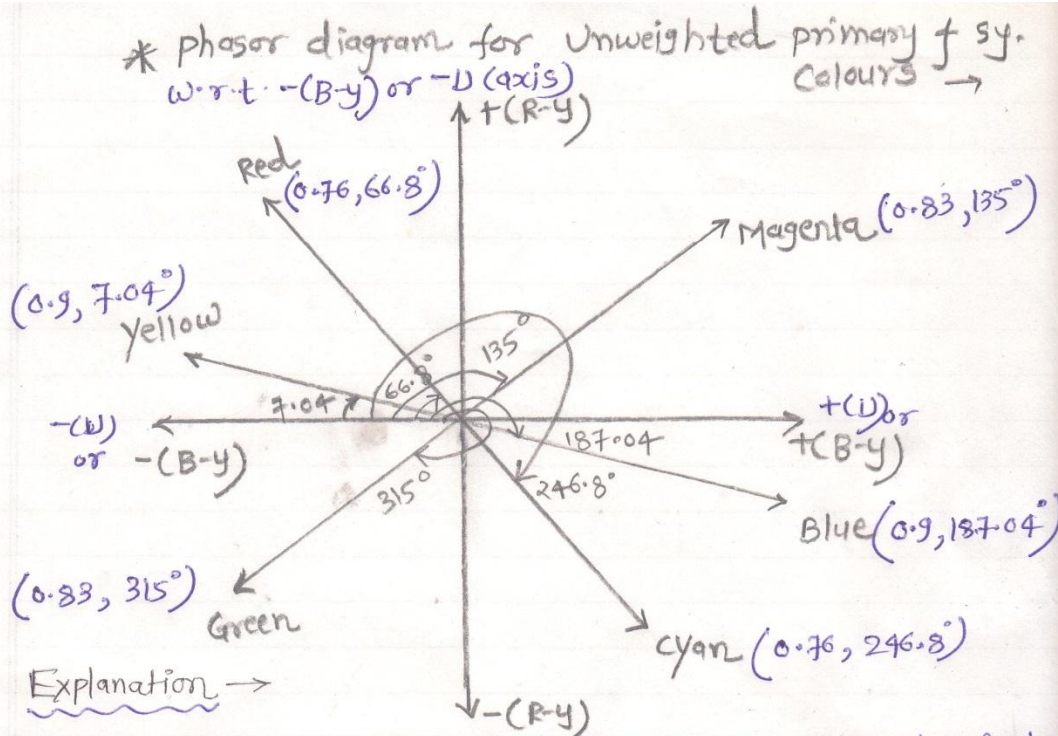 * phasor diagram for Unweighted primary & sy.
Colours →
w.r.t. -(B-y) or -U (axis)
+(R-y)
Red
(0.76, 66.8°)
Magenta (0.83, 135°)
(0.9, 7.04°)
Yellow
135°
66.8°
7.04
-(U)
or -(B-y)
+(U) or
+(B-y)
187.04
246.8°
315°
Blue (0.9, 187.04°)
(0.83, 315°)
Green
Cyan (0.76, 246.8°)
Explanation →
-(R-y)